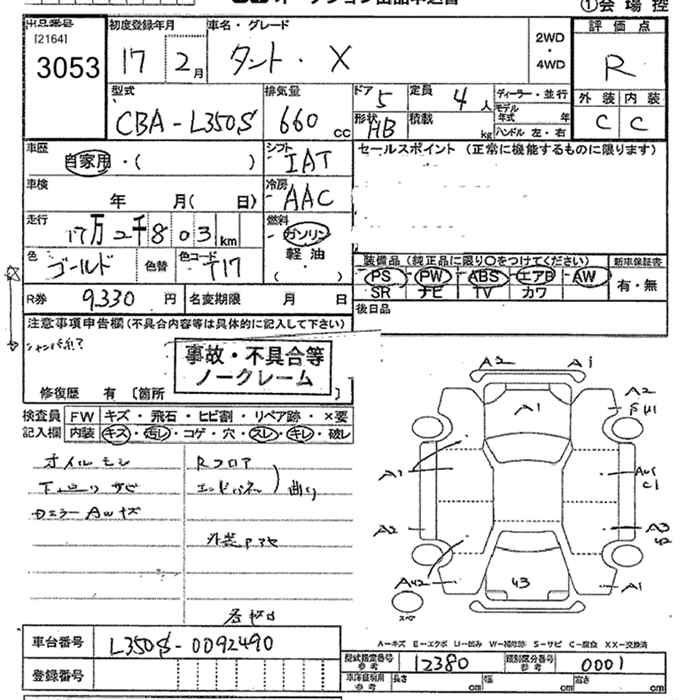 ①会場控
出品番号 初度登録年月 車名・グレード 評価点
[2164] 3053 17 2月 タント・X 2WD・4WD R
型式 排気量 ドア 定員 ディーラー・並行 外装 内装
CBA-L350S 660cc 5 4人 モデル年式 年 C C
形状 HB 積載 kg ハンドル 左・右
車歴 シフト セールスポイント (正常に機能するものに限ります)
自家用・( ) IAT
車検 冷房
年 月( 日) AAC
走行 燃料
17万2千803km ガソリン
色 色替 色コード 軽油 装備品 (純正品に限り○をつけてください) 新車保証書
ゴールド T17 ( ) PS PW ABS エアB AW 有・無
SR ナビ TV カワ
R券 9330円 名変期限 月 日 後日品
注意事項申告欄(不具合内容等は具体的に記入して下さい)
事故・不具合等
ノークレーム
修復歴 有 [箇所 ]
検査員 FW キズ・飛石・ヒビ割・リペア跡・×要
記入欄 内装 キズ・汚レ・コゲ・穴・スレ・キレ・破レ
オイルモレ Rフロア
下廻りサビ エンドパネル 曲り
A2 A1
A1
A2
A1
C1
A2 A3
A1
A-キズ E-エクボ U-凹み W-補修跡 S-サビ C-腐食 XX-交換済
車台番号 L350S-0092490
型式指定番号 参考 12380 類別区分番号 参考 0001
登録番号
車庫証明用 参考 長さ cm 幅 cm 高さ cm